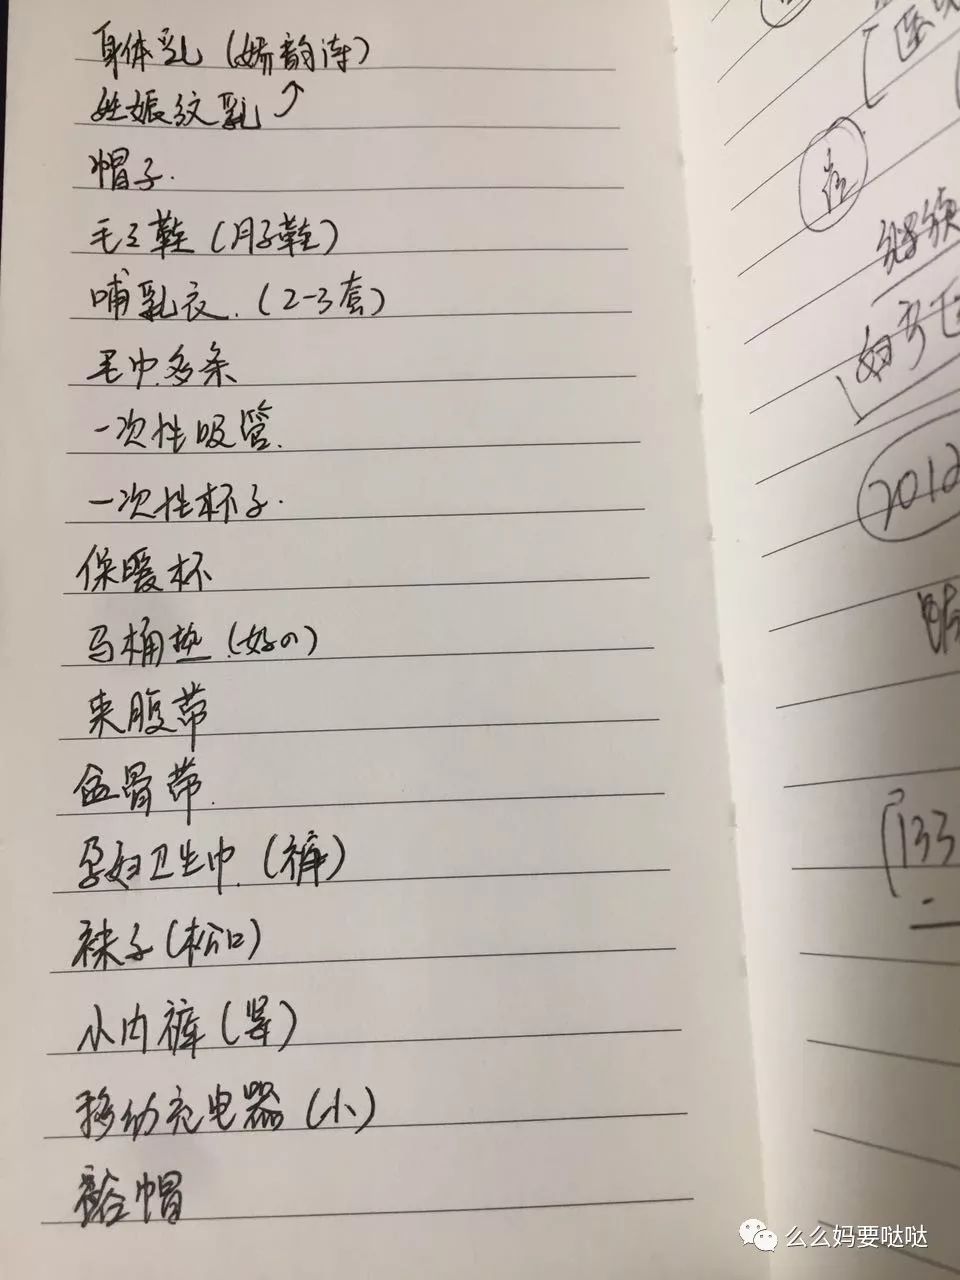 身体乳（娇韵诗）
妊娠纹乳↗
帽子.
毛毛鞋（月子鞋）
哺乳衣.（2-3套）
毛巾多条
一次性吸管.
一次性杯子.
保暖杯
马桶垫（好の）
束腹带
盆骨带.
孕妇卫生巾.（裤）
袜子（松口）
小内裤（
移动充电器（小）
浴帽
继续
2012
133
么么妈要哒哒